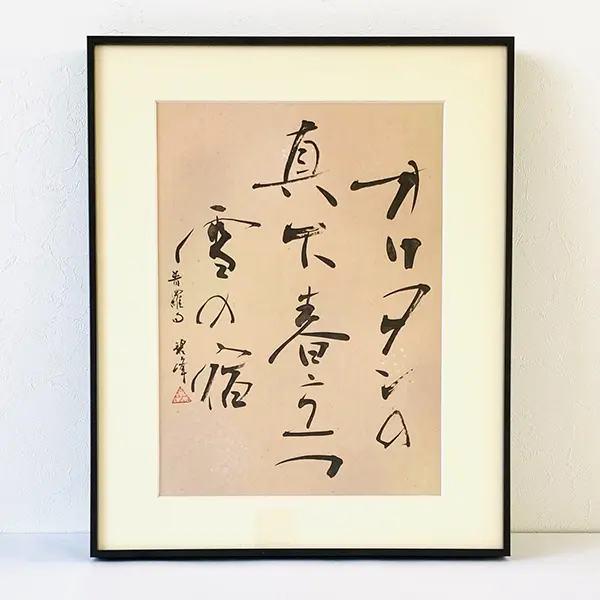 オリヲンの
真下春立つ
雪の宿
普羅句